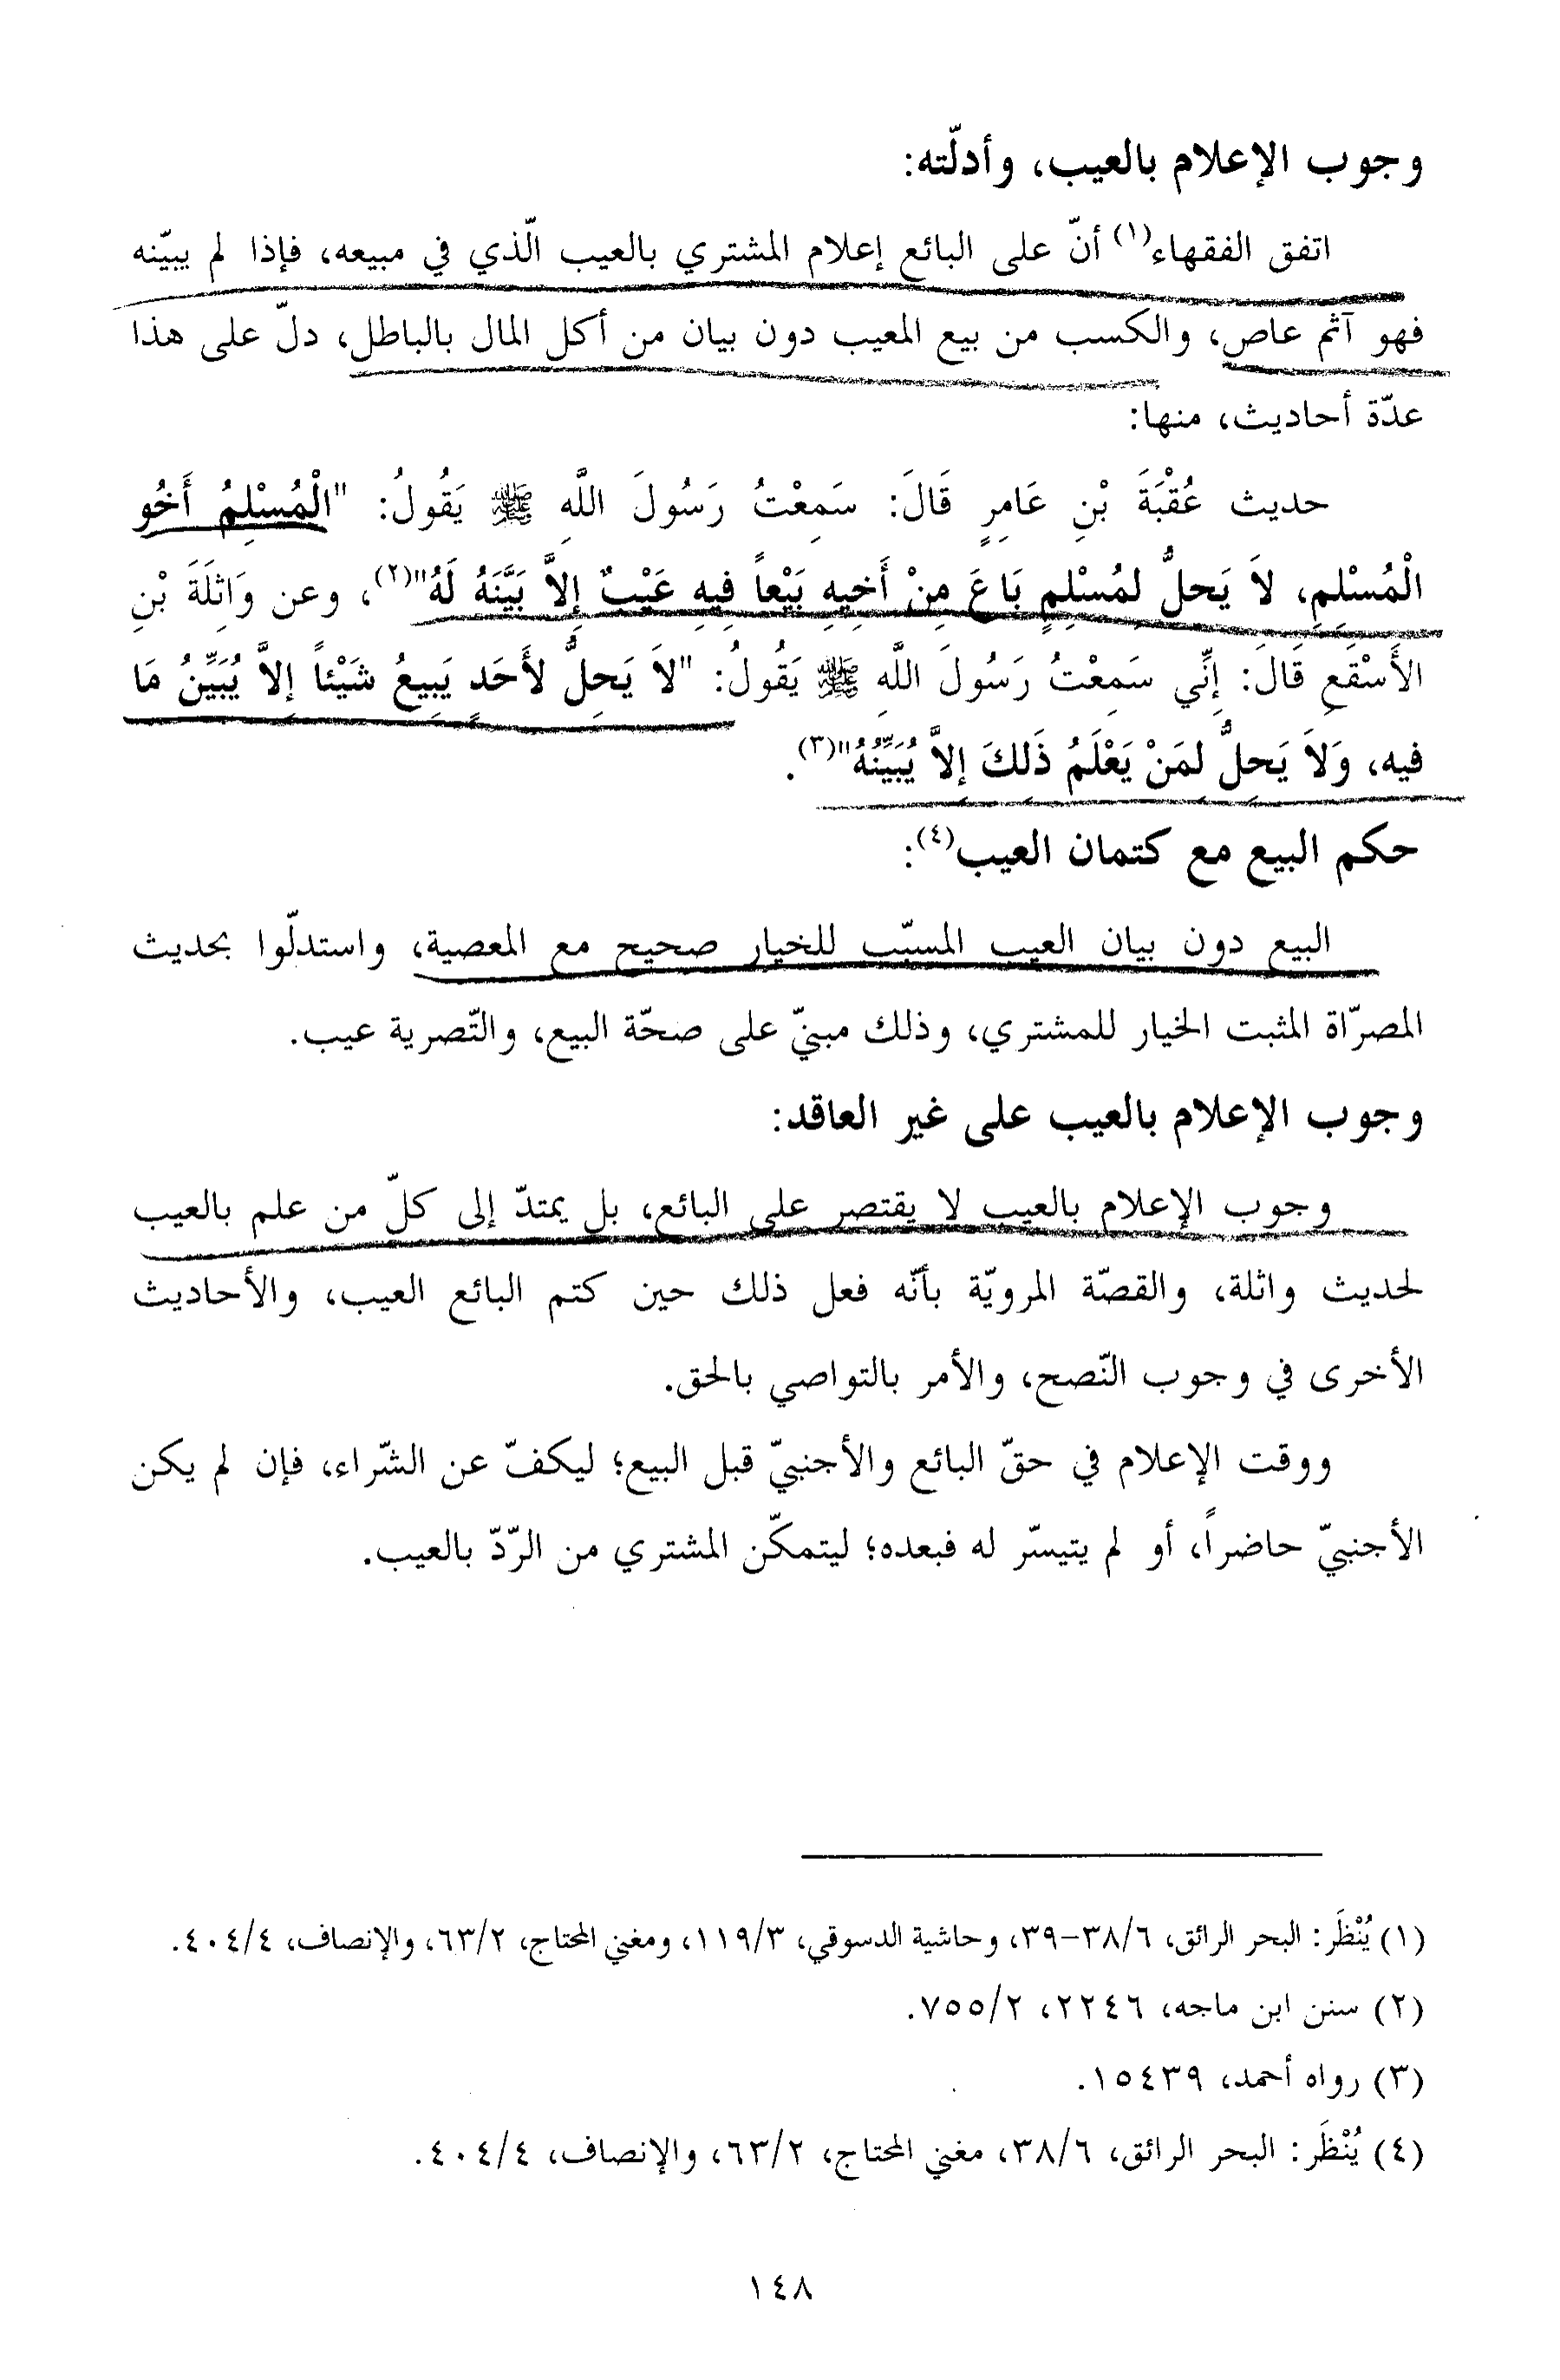 وجوب الإعلام بالعيب، وأدلّته:
اتفق الفقهاء(١) أنّ على البائع إعلام المشتري بالعيب الّذي في مبيعه، فإذا لم يبيّنه
فهو آثم عاص، والكسب من بيع المعيب دون بيان من أكل المال بالباطل، دلّ على هذا
عدّة أحاديث، منها:
حديث عُقْبَةَ بْنِ عَامِرٍ قَالَ: سَمِعْتُ رَسُولَ اللَّهِ ﷺ يَقُولُ: "الْمُسْلِمُ أَخُو
الْمُسْلِمِ، لاَ يَحِلُّ لِمُسْلِمٍ بَاعَ مِنْ أَخِيهِ بَيْعاً فِيهِ عَيْبٌ إِلاَّ بَيَّنَهُ لَهُ"(٢)، وعن وَاثِلَةَ بْنِ
الأَسْقَعِ قَالَ: إِنِّي سَمِعْتُ رَسُولَ اللَّهِ ﷺ يَقُولُ: "لاَ يَحِلُّ لأَحَدٍ يَبِيعُ شَيْئاً إِلاَّ يُبَيِّنُ مَا
فيه، وَلاَ يَحِلُّ لِمَنْ يَعْلَمُ ذَلِكَ إِلاَّ يُبَيِّنُهُ"(٣).
حكم البيع مع كتمان العيب(٤):
البيع دون بيان العيب المسبّب للخيار صحيح مع المعصية، واستدلّوا بحديث
المصرّاة المثبت الخيار للمشتري، وذلك مبنيّ على صحّة البيع، والتّصرية عيب.
وجوب الإعلام بالعيب على غير العاقد:
وجوب الإعلام بالعيب لا يقتصر على البائع، بل يمتدّ إلى كلّ من علم بالعيب
لحديث واثلة، والقصّة المرويّة بأنّه فعل ذلك حين كتم البائع العيب، والأحاديث
الأخرى في وجوب النّصح، والأمر بالتواصي بالحق.
ووقت الإعلام في حقّ البائع والأجنبيّ قبل البيع؛ ليكفّ عن الشّراء، فإن لم يكن
الأجنبيّ حاضراً، أو لم يتيسّر له فبعده؛ ليتمكّن المشتري من الرّدّ بالعيب.
(١) يُنْظَر: البحر الرائق، ٣٨/٦-٣٩، وحاشية الدسوقي، ١١٩/٣، ومغني المحتاج، ٦٣/٢، والإنصاف، ٤٠٤/٤.
(٢) سنن ابن ماجه، ٢٢٤٦، ٧٥٥/٢.
(٣) رواه أحمد، ١٥٤٣٩.
(٤) يُنْظَر: البحر الرائق، ٣٨/٦، مغني المحتاج، ٦٣/٢، والإنصاف، ٤٠٤/٤.
١٤٨